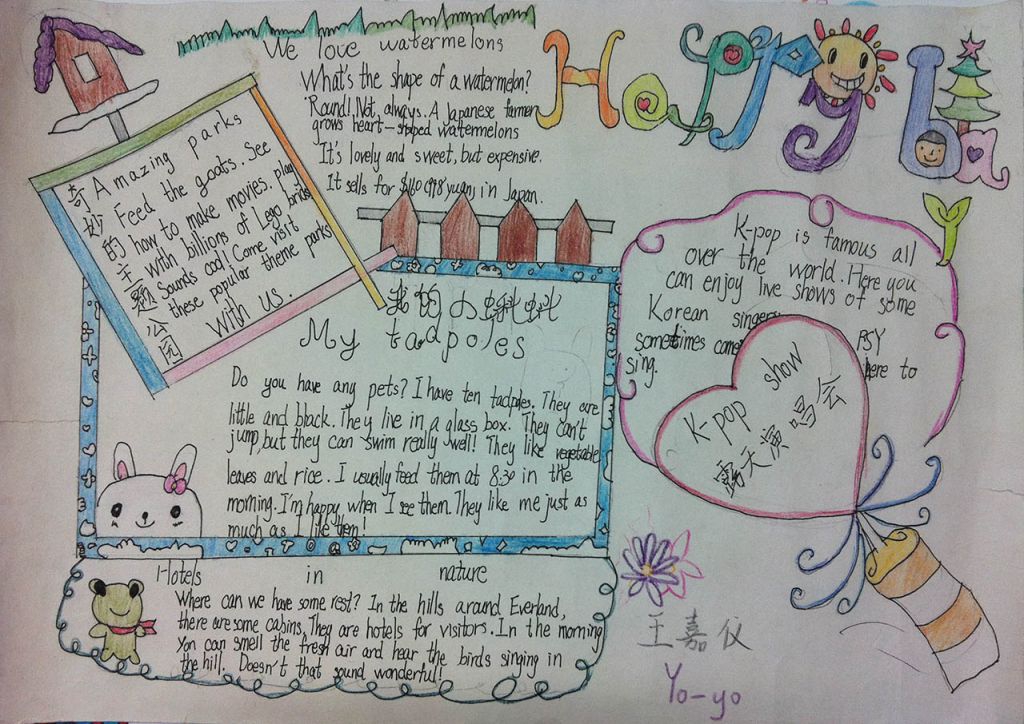 We love watermelons
What's the shape of a watermelon?
Round! Not, always. A Japanese farmer
grows heart-shaped watermelons
It's lovely and sweet, but expensive.
It sells for $160 (998 yuan) in Japan.
Happy
ba
by
奇妙的主题公园
Amazing parks
Feed the goats. See
how to make movies. play
with billions of Lego bricks
Sounds cool! Come visit
these popular theme parks
with us.
我的小蝌蚪
My tadpoles
Do you have any pets? I have ten tadples. They are
little and black. They live in a glass box. They can't
jump, but they can swim really well! They like vegetable
leaves and rice. I usually feed them at 8:30 in the
morning. I'm happy when I see them. They like me just as
much as I like them!
K-pop is famous all
over the world. Here you
can enjoy live shows of some
Korean singers
PSY
sometimes come here to
sing.
K-pop show
露天演唱会
Hotels in nature
Where can we have some rest? In the hills around Everland,
there are some cabins. They are hotels for visitors. In the morning
you can smell the fresh air and hear the birds singing in
the hill. Doesn't that sound wonderful!
王嘉仪
Yo-yo